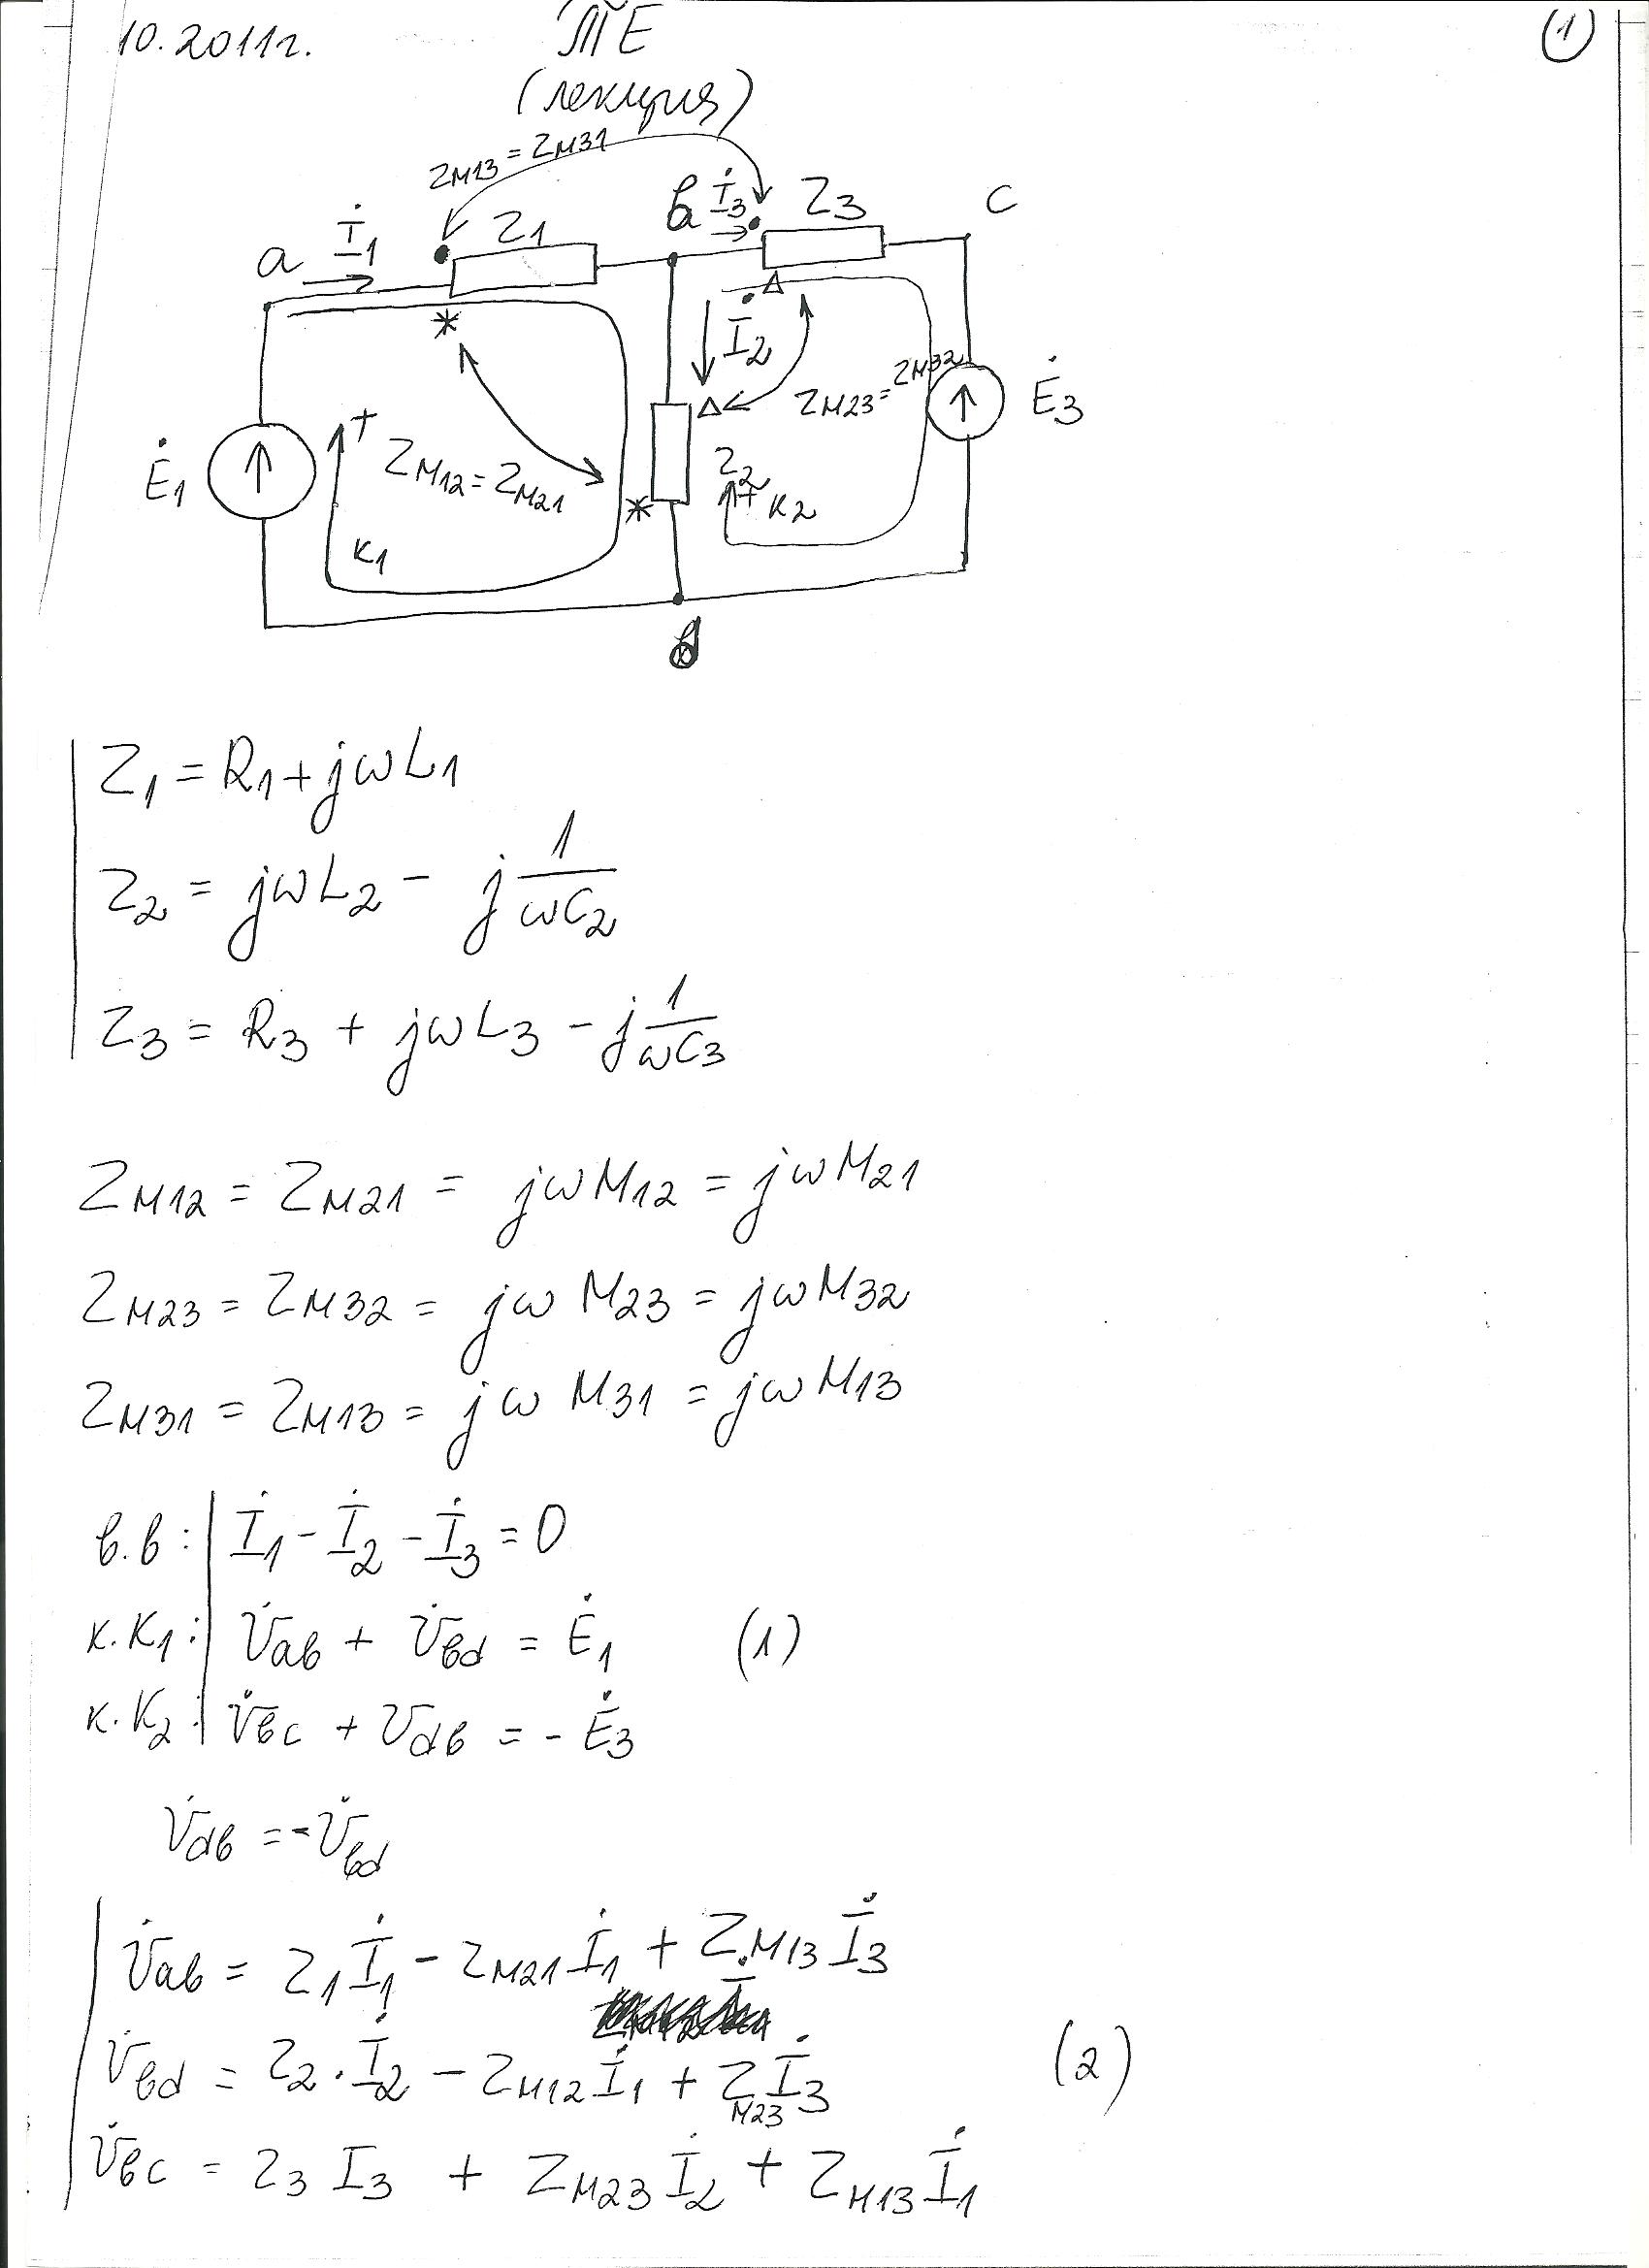 10.2011г.
ТЕ
(1)
(лекция)
ZM13 = ZM31
a
İ1
Z1
b
İ3
Z3
c
*
Δ
İ2
Δ
ZM23 = ZM32
Ė1
+
ZM12 = ZM21
*
Z2
+ K2
Ė3
K1
d
Z1 = R1 + jωL1
Z2 = jωL2 - j 1/ωC2
Z3 = R3 + jωL3 - j 1/ωC3
ZM12 = ZM21 = jωM12 = jωM21
ZM23 = ZM32 = jωM23 = jωM32
ZM31 = ZM13 = jωM31 = jωM13
в.в: İ1 - İ2 - İ3 = 0
к.K1: U̇ab + U̇bd = Ė1 (1)
к.K2: U̇bc + Udb = - Ė3
U̇db = - U̇bd
U̇ab = Z1 İ1 - ZM21 İ1 + ZM13 İ3
U̇bd = Z2 · İ2 - ZM12 İ1 + ZM23 İ3 (2)
U̇bc = Z3 I3 + ZM23 İ2 + ZM13 İ1